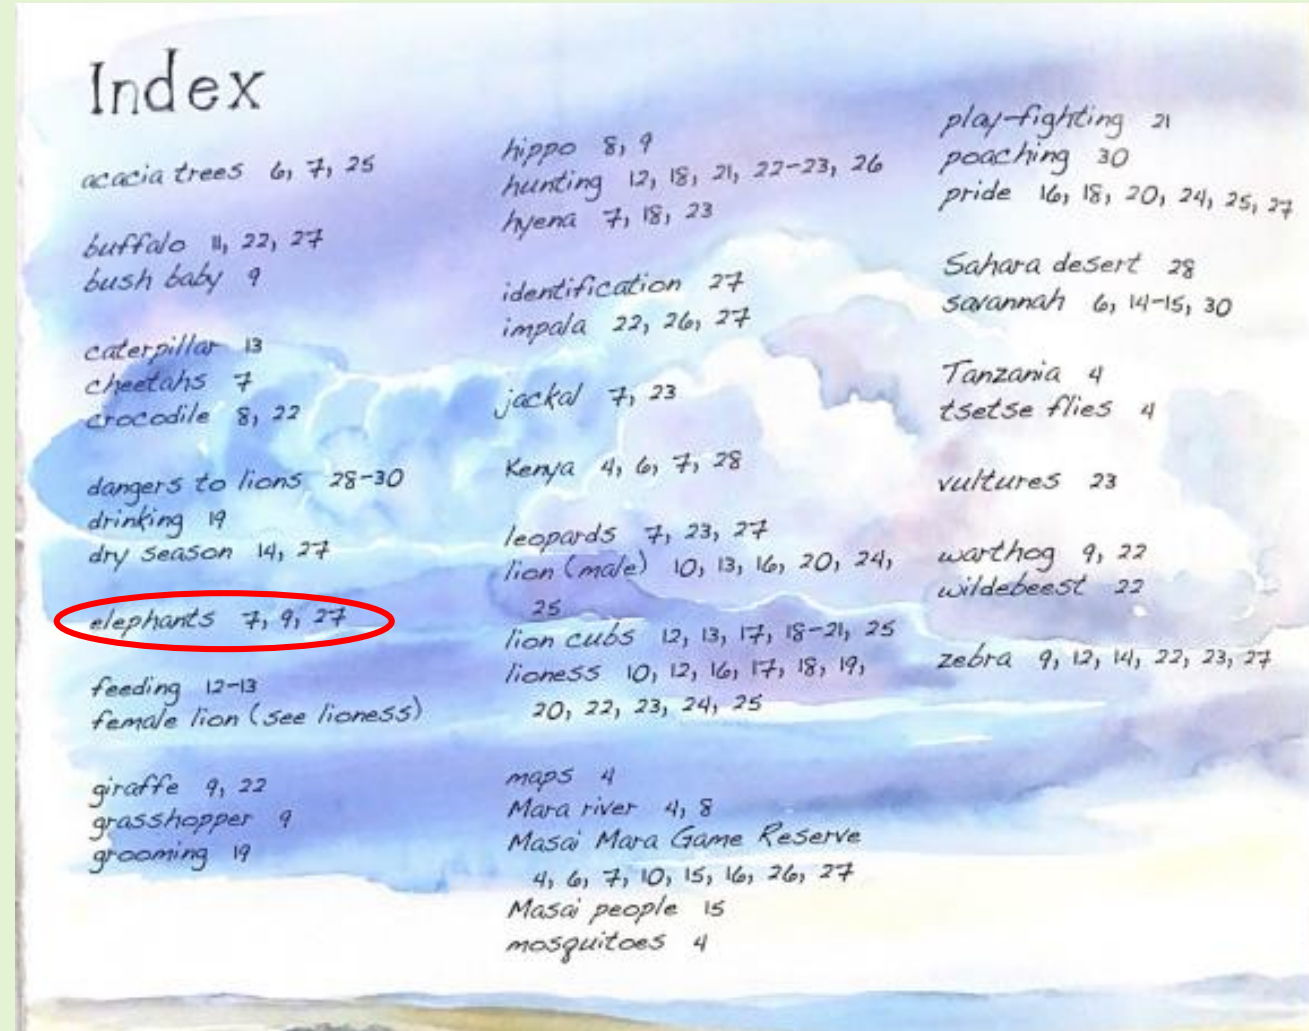 Index
acacia trees 6, 7, 25
buffalo 11, 22, 27
bush baby 9
caterpillar 13
cheetahs 7
crocodile 8, 22
dangers to lions 28-30
drinking 19
dry season 14, 27
elephants 7, 9, 27
feeding 12-13
female lion (see lioness)
giraffe 9, 22
grasshopper 9
grooming 19
hippo 8, 9
hunting 12, 18, 21, 22-23, 26
hyena 7, 18, 23
identification 27
impala 22, 26, 27
jackal 7, 23
Kenya 4, 6, 7, 28
leopards 7, 23, 27
lion (male) 10, 13, 16, 20, 24,
25
lion cubs 12, 13, 17, 18-21, 25
lioness 10, 12, 16, 17, 18, 19,
20, 22, 23, 24, 25
maps 4
Mara river 4, 8
Masai Mara Game Reserve
4, 6, 7, 10, 15, 16, 26, 27
Masai people 15
mosquitoes 4
play-fighting 21
poaching 30
pride 16, 18, 20, 24, 25, 27
Sahara desert 28
savannah 6, 14-15, 30
Tanzania 4
tsetse flies 4
vultures 23
warthog 9, 22
wildebeest 22
zebra 9, 12, 14, 22, 23, 27